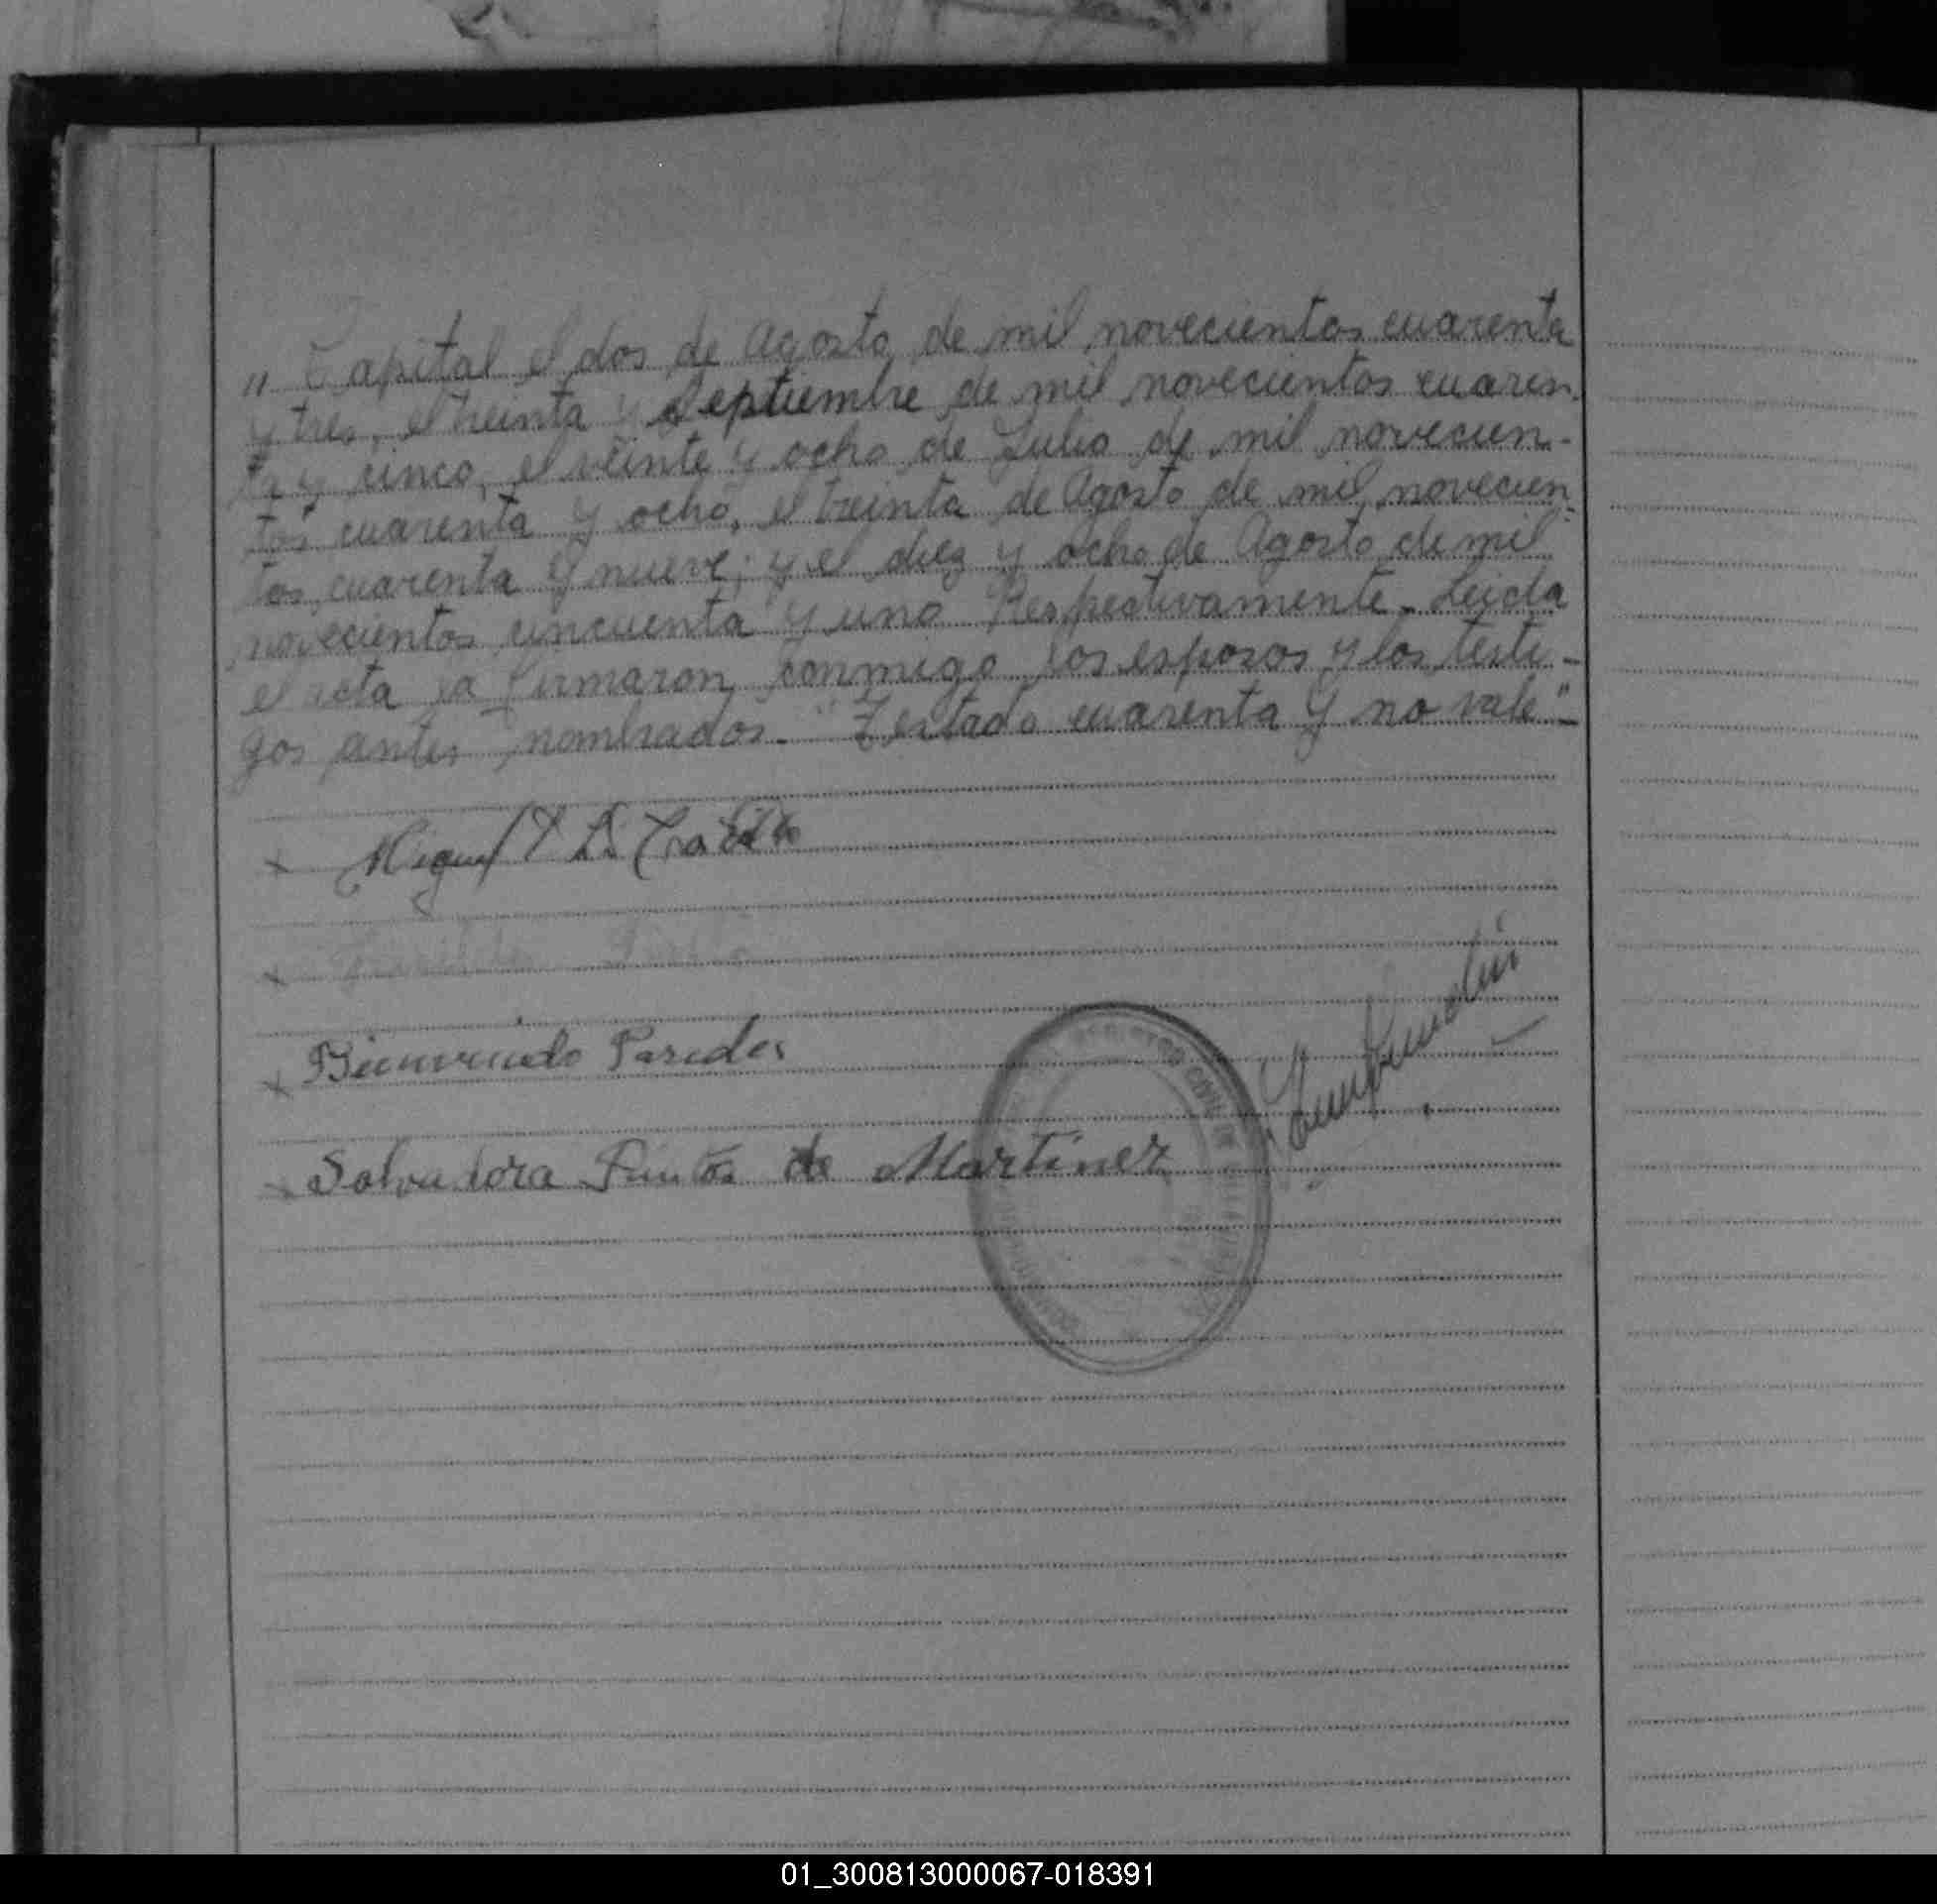 " Capital el dos de Agosto de mil novecientos cuarenta
y tres, el treinta y Septiembre de mil novecientos cuaren
ta y cinco, el veinte y ocho de Julio de mil novecien-
tos cuarenta y ocho, el treinta de Agosto de mil novecien
tos cuarenta y nueve; y el diez y ocho de Agosto de mil
novecientos cincuenta y uno Respectivamente. Leida
el acta la firmaron conmigo los esposos y los testi-
gos antes nombrados. "Testado cuarenta y no vale"-
x Miguel
x
x Bienvenido Paredes
x Salvadora de Martinez
01_300813000067-018391